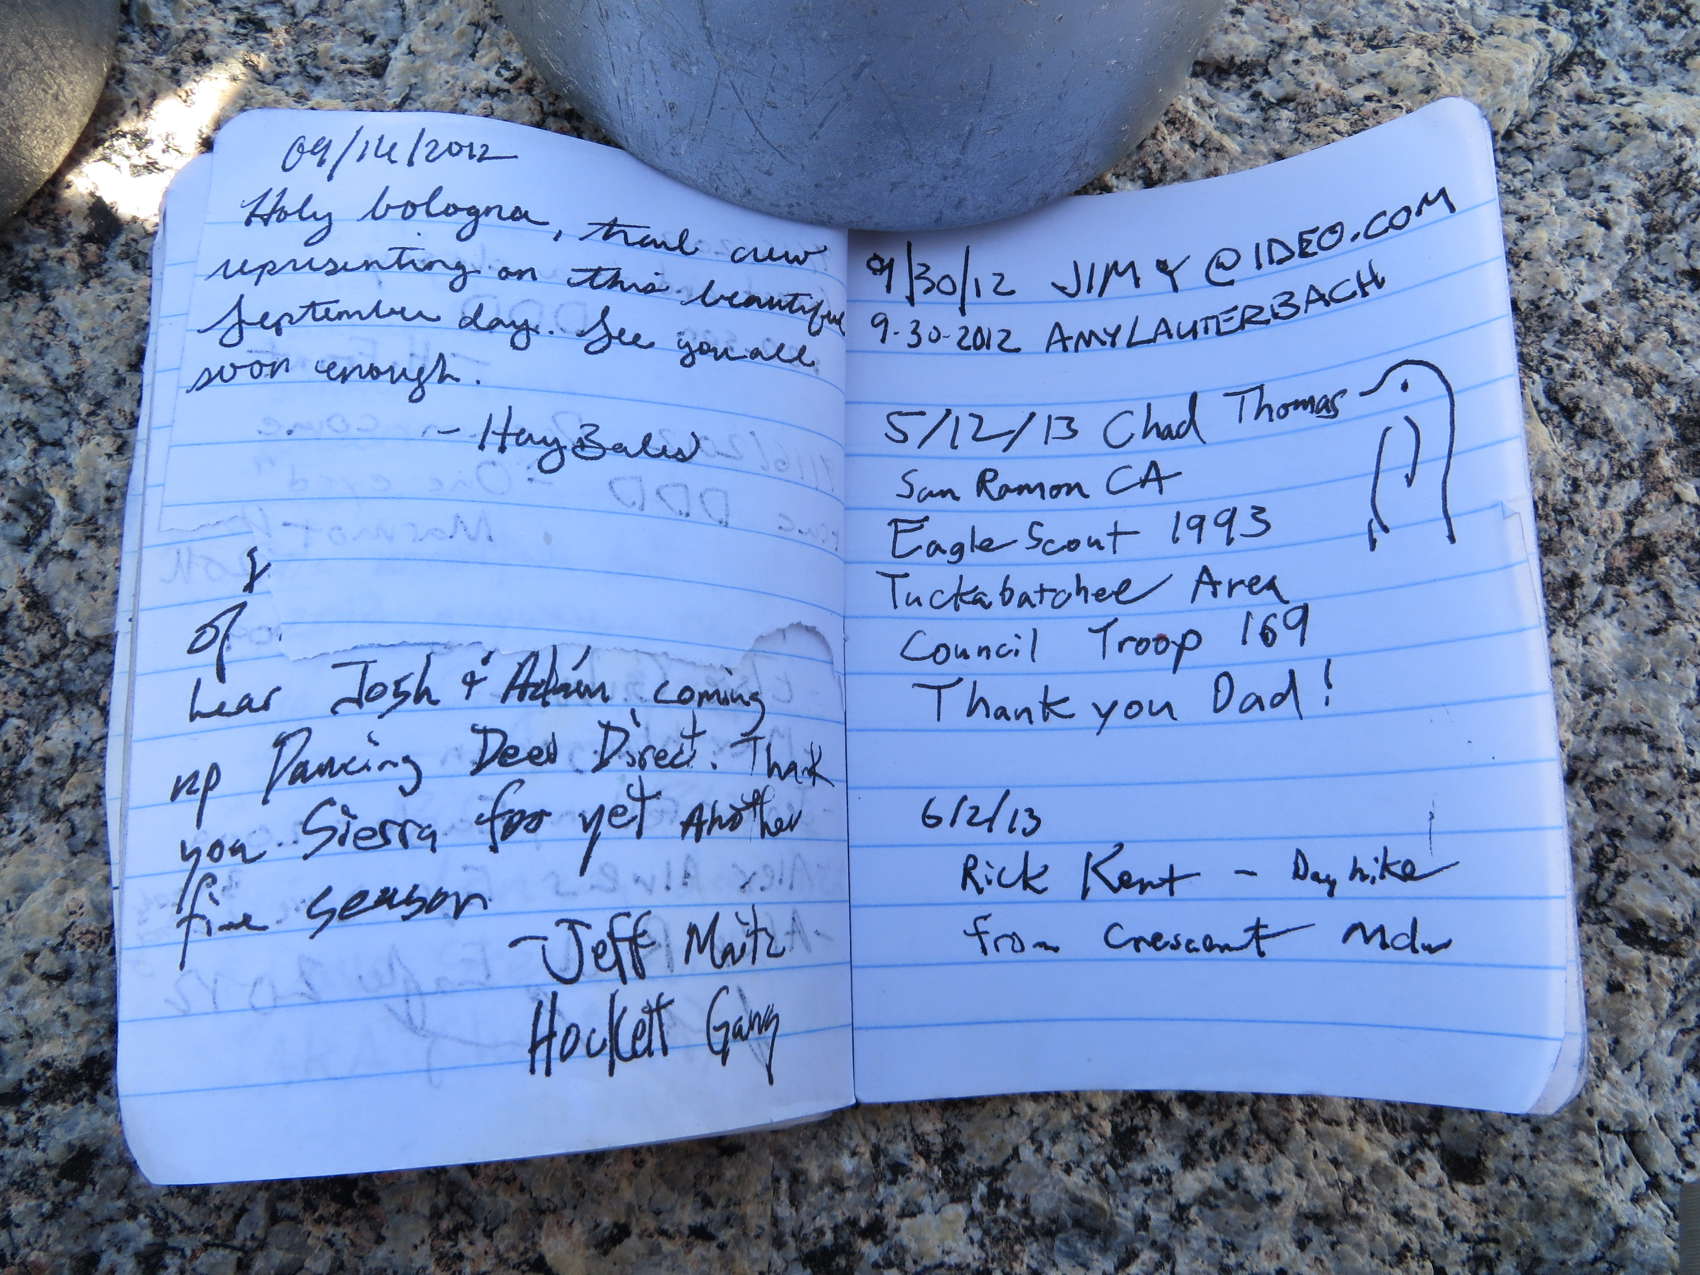 09/14/2012
Holy bologna, trail crew
representing on this beautiful
September day. See you all
soon enough.
- Hay Bales
of
hear Josh & Adam coming
up Dancing Deer Direct. Thank
you Sierra for yet Another
fine season
- Jeff
Hockett Gang
9/30/12 JIMY@IDEO.COM
9-30-2012 AMY LAUTERBACH
5/12/13 Chad Thomas
San Ramon CA
Eagle Scout 1993
Tuckabatchee Area
Council Troop 169
Thank you Dad!
6/2/13
Rick Kent - Day hike
from Crescent Mdw